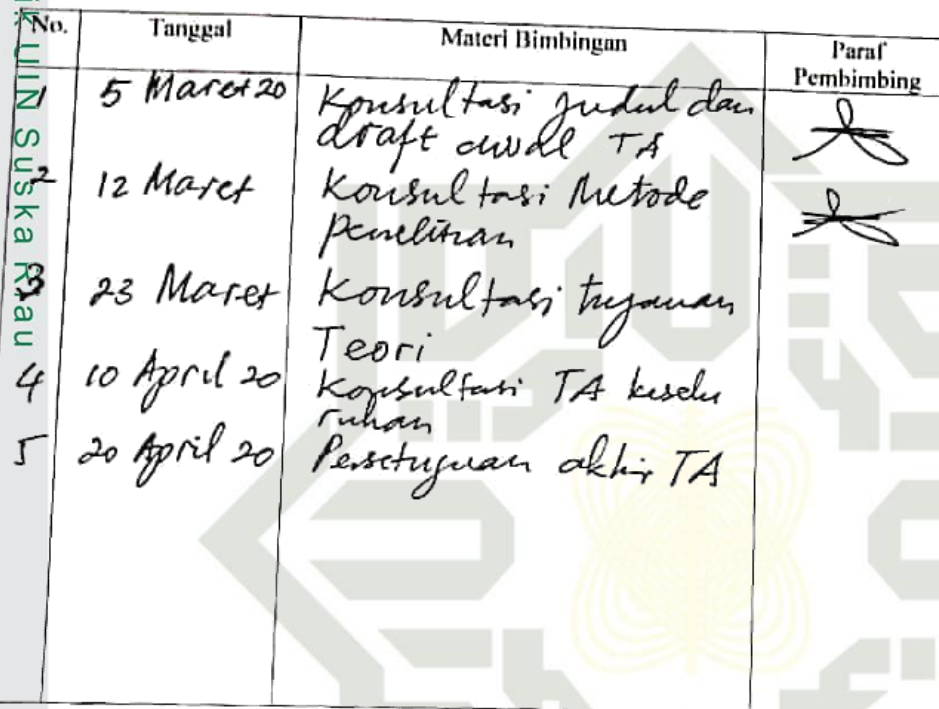 k UIN Suska Riau
No. Tanggal Materi Bimbingan Paraf
Pembimbing
1 5 Maret 20 Konsultasi judul dan
draft awal TA
2 12 Maret Konsultasi Metode
Penelitian
3 23 Maret Konsultasi tinjauan
Teori
4 10 April 20 Konsultasi TA keselu
ruhan
5 20 April 20 Persetujuan akhir TA